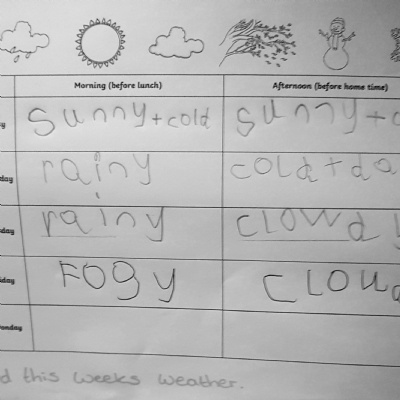 Morning (before lunch) Afternoon (before home time)
sunny+cold sunny+c
rainy cold+da
rainy clowd
Fogy Cloud
onday
d this weeks weather.